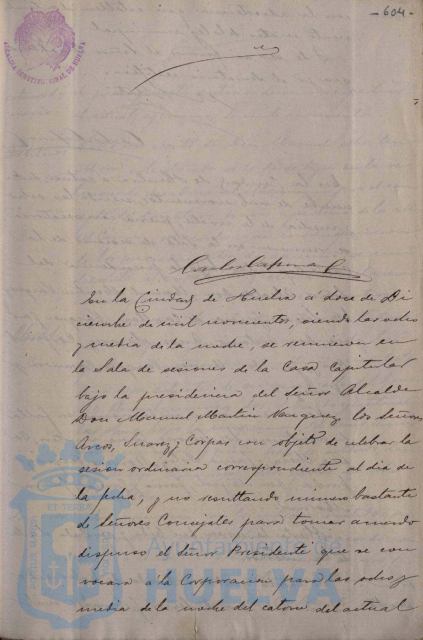 -604-
ALCALDIA CONSTITUCIONAL DE HUELVA
En la Ciudad de Huelva á doce de Di
ciembre de mil novecientos, siendo las ocho
y media de la noche, se reunieron en
la Sala de sesiones de la Casa Capitular
bajo la presidencia del Señor Alcalde
Don Manuel Martin Vazquez los Señores
Arcos, Suarez y Corpas con objeto de celebrar la
sesion ordinaria correspondiente al dia de
la fecha, y no resultando número bastante
de Señores Concejales para tomar acuerdo
dispuso el Señor Presidente que se con
vocara á la Corporacion para las ocho y
media de la noche del catorce del actual
Ayuntamiento de
HUELVA